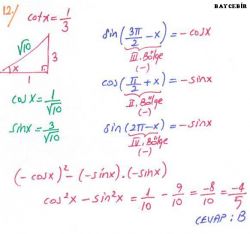 BAYCEBİR
12./
cotx = 1/3
√10
3
x
1
cosx = 1/√10
sinx = 3/√10
sin(3π/2 - x) = -cosx
III. Bölge
(-)
cos(π/2 + x) = -sinx
II. Bölge
(-)
sin(2π - x) = -sinx
IV. Bölge
(-)
(-cosx)² - (-sinx).(-sinx)
cos²x - sin²x = 1/10 - 9/10 = -8/10 = -4/5
CEVAP: B